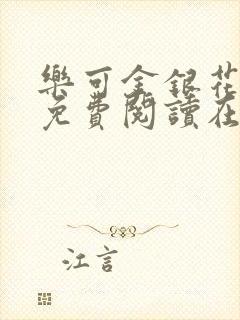 樂可金銀花
免費閱讀在
江言